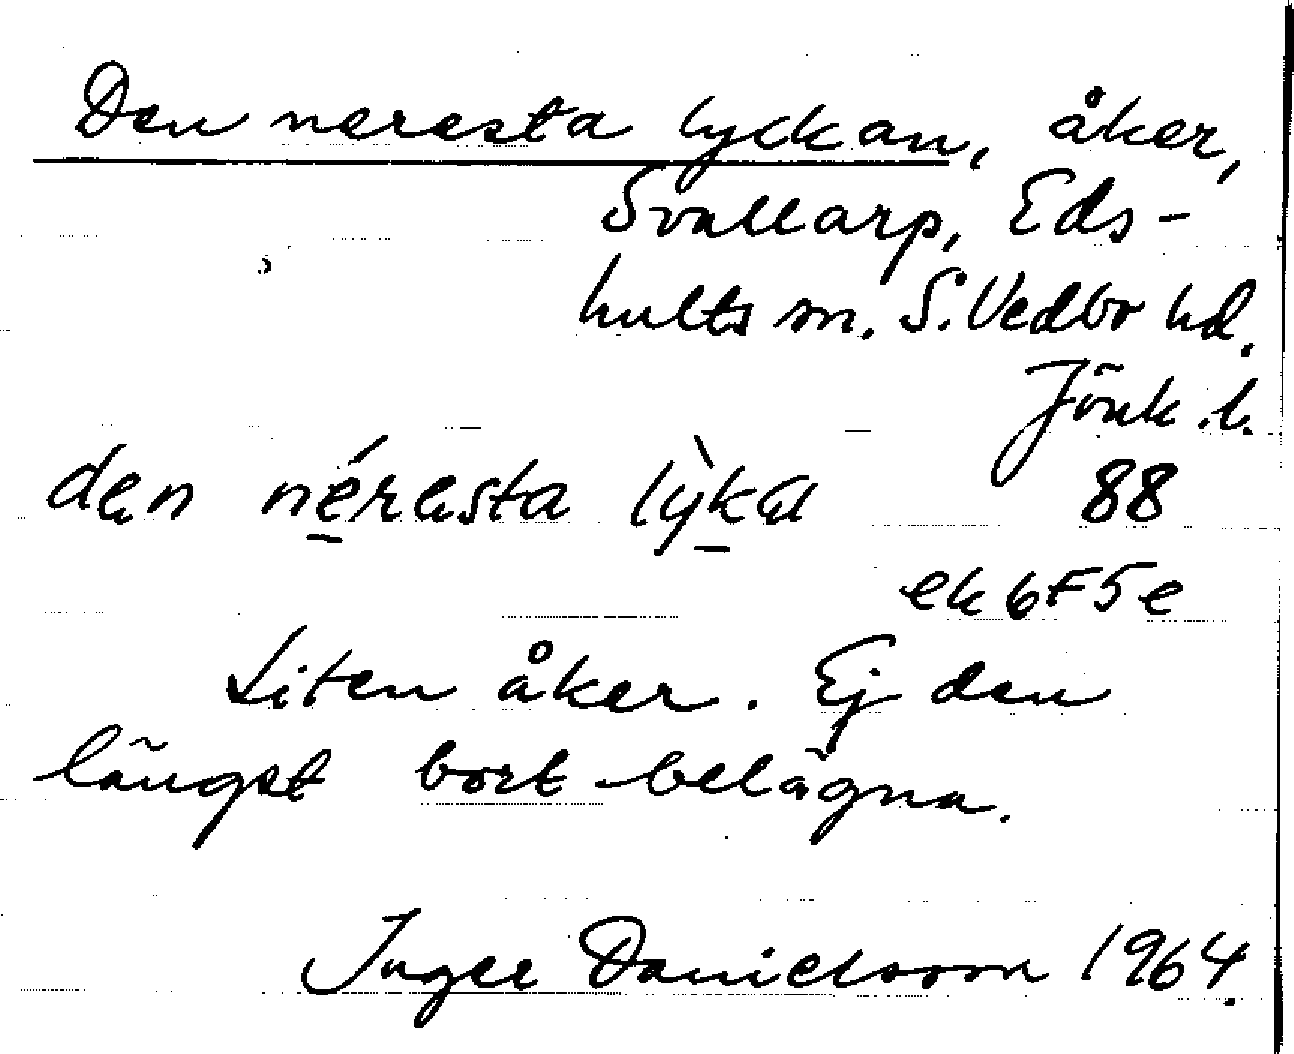 Den neresta lyckan, åker,
Svallarp, Eds-
hults sn. S. Vedbo hd.
Jönk. l.
den néresta lỳka 88
ek 6F5e
Liten åker. Ej den
längst bort belägna.
Inger Danielsson 1964.